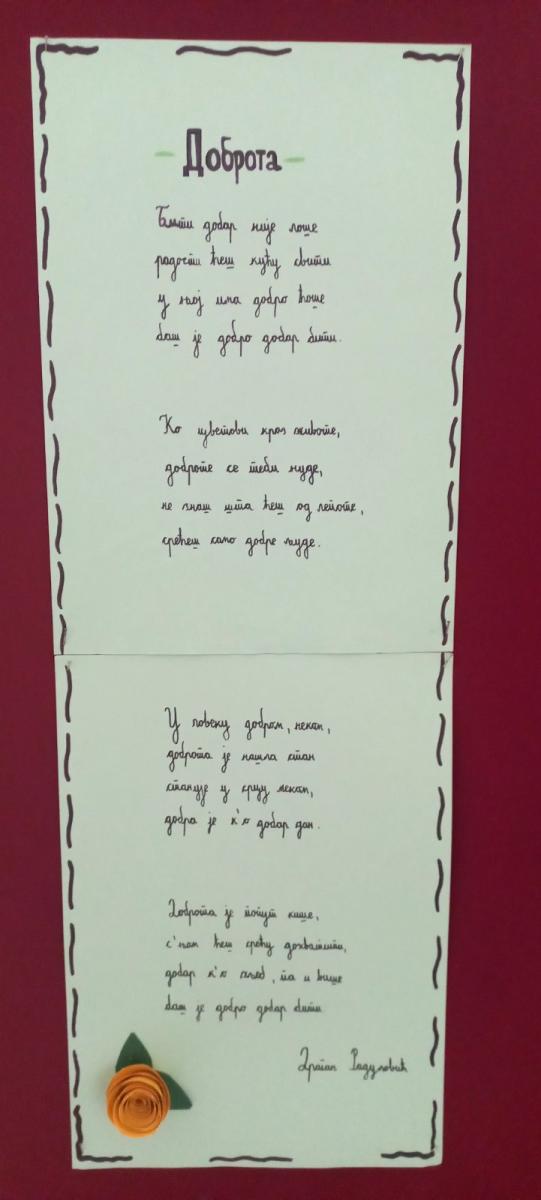 - Доброта -
Бити добар није лоше
радости ћеш кућу свити
у њој има добро ћоше
баш је добро добар бити.
Ко цветови кроз животе,
доброте се теби нуде,
не знаш шта ћеш од лепоте,
срећеш само добре људе.
У човеку добром, неком,
доброта је нашла стан
станује у срцу меком,
добра је к'о добар дан.
Доброта је попут кише,
с'њом ћеш срећу дохватити,
добар к'о и више
баш је добро добар бити.
Драган Радуловић